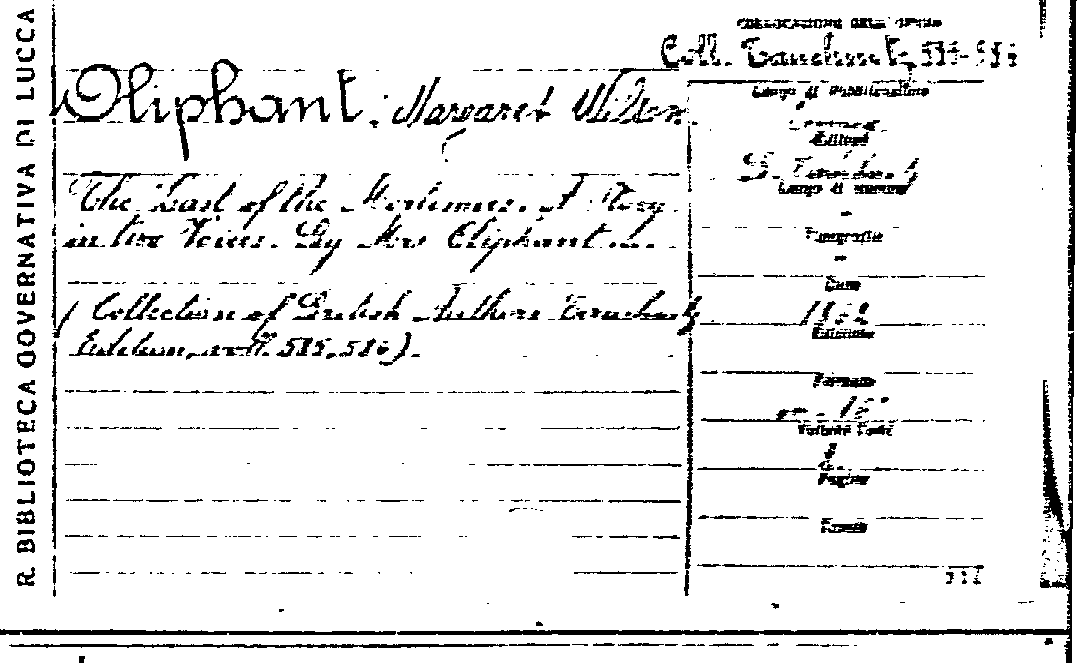 R. BIBLIOTECA GOVERNATIVA DI LUCCA
COLLOCAZIONE DELL'OPERA
Coll. Tauchnitz 585-586
Oliphant, Margaret Wilson.
Luogo di Pubblicazione
Editore
B. Tauchnitz
Luogo di stampa
-
The Last of the Mortimers. A Story
in two Voices. By Mrs Oliphant ...
Tipografia
-
Data
1862
(Collection of British Authors Tauchnitz
Edition, voll. 585, 586).
Edizione
Formato
in-16°
Volume
2.
Pagine